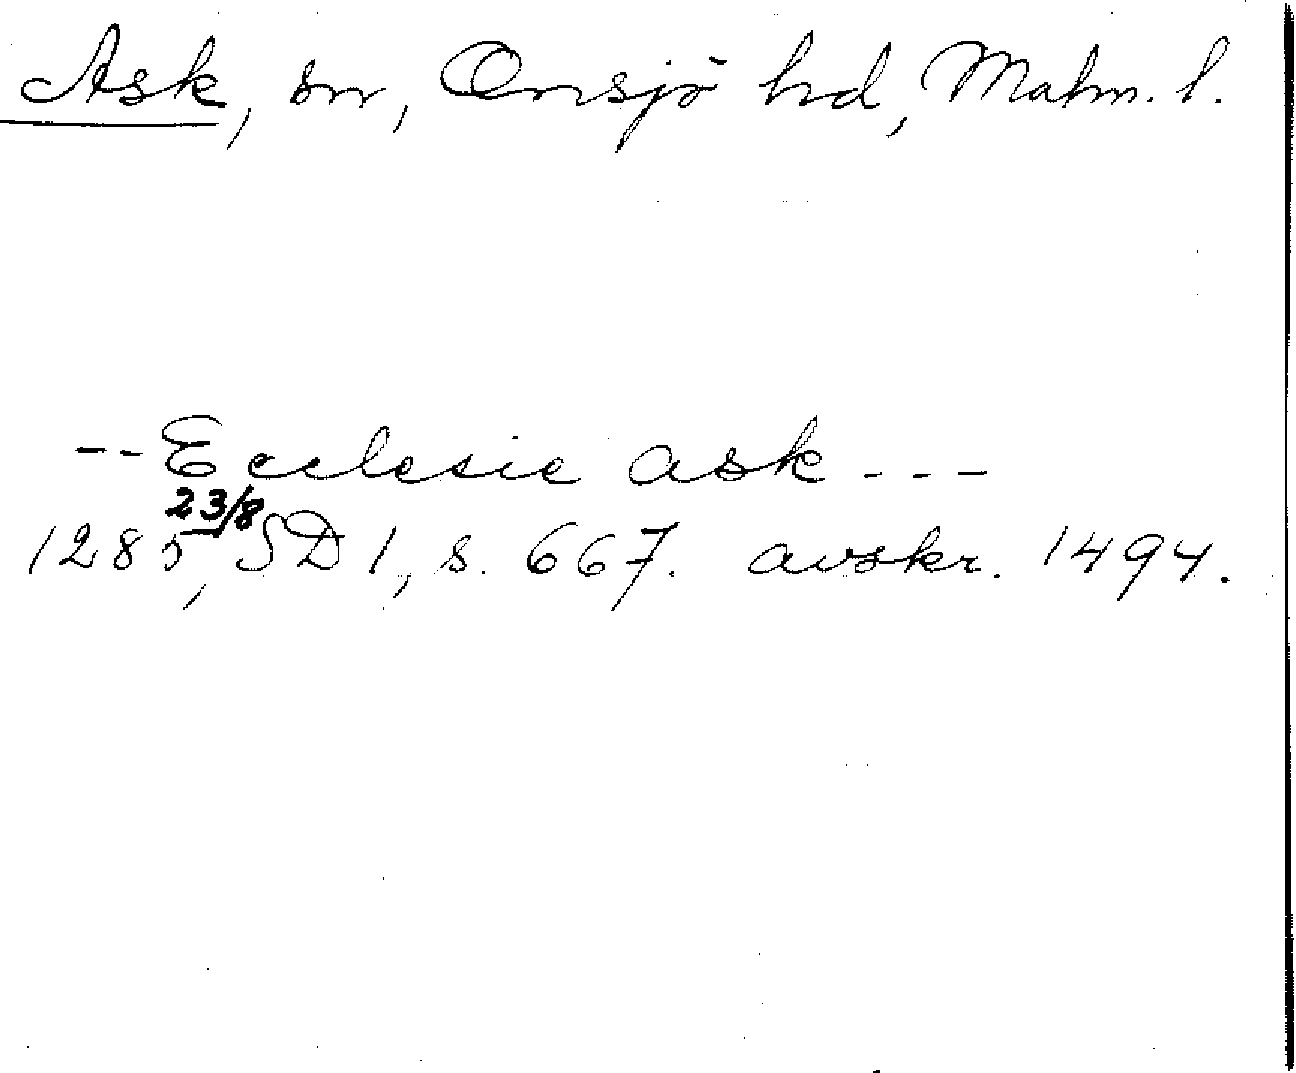 Ask, sn, Onsjö hd, Malm. l.
--Ecclesie ask---
23/8
1285, SD 1, s. 667. avskr. 1494.